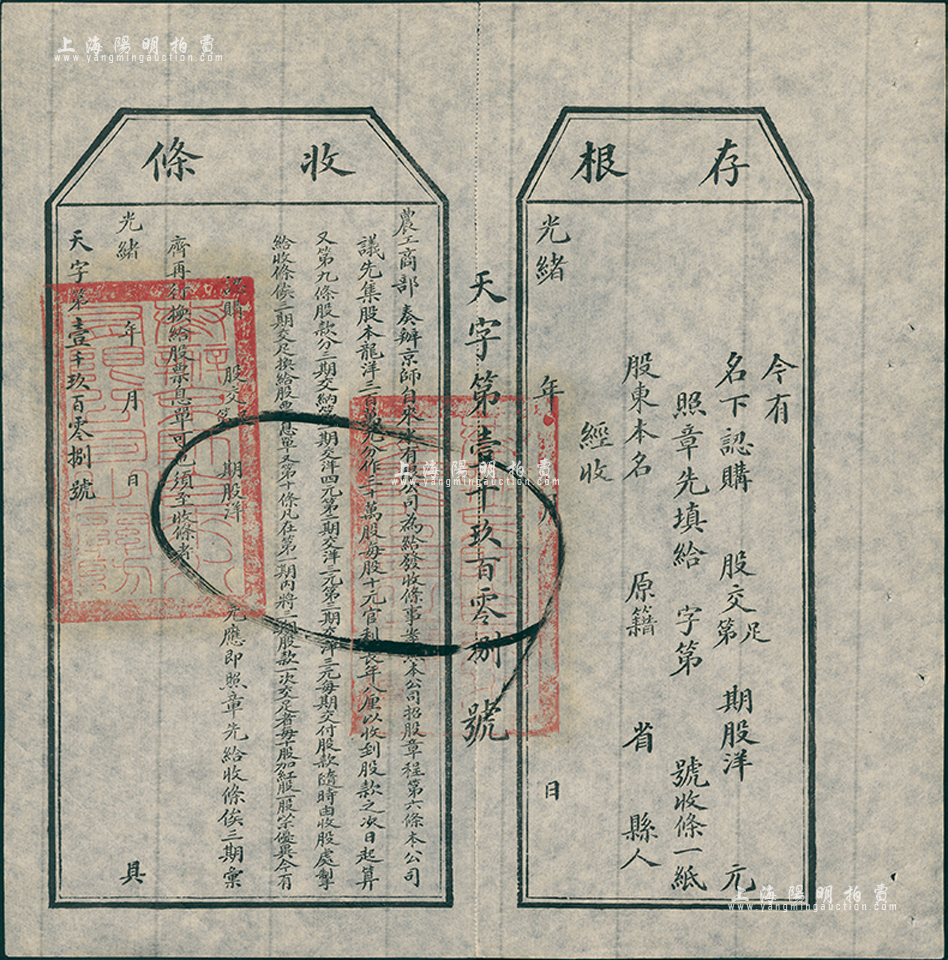 上海陽明拍賣
www.yangmingauction.com
存根
今有
名下認購 股交足第 期股洋 元
照章先填給 字第 號收條一紙
股東本名 原籍 省 縣人
經收
光緒 年 月 日
天字第壹千玖百零捌號
收條
農工商部奏辦京師自來水有限公司為給發收條事案照本公司招股章程第六條本公司
議先集股本龍洋三百萬元分作三十萬股每股十元官利長年八厘以收到股款之次日起算
又第九條股款分三期交納第一期交洋四元第二期交洋三元第三期交洋三元每期交付股款隨時由收股處掣
給收條俟三期交足換給股票息單又第十條凡在第一期內將三期股款一次交足者每十股加紅股一股以示優異今有
認購 股交足第 期股洋 元應即照章先給收條俟三期彙
齊再行換給股票息單可也須至收條者
光緒 年 月 日 具
天字第壹千玖百零捌號
上海陽明拍賣
www.yangmingauction.com